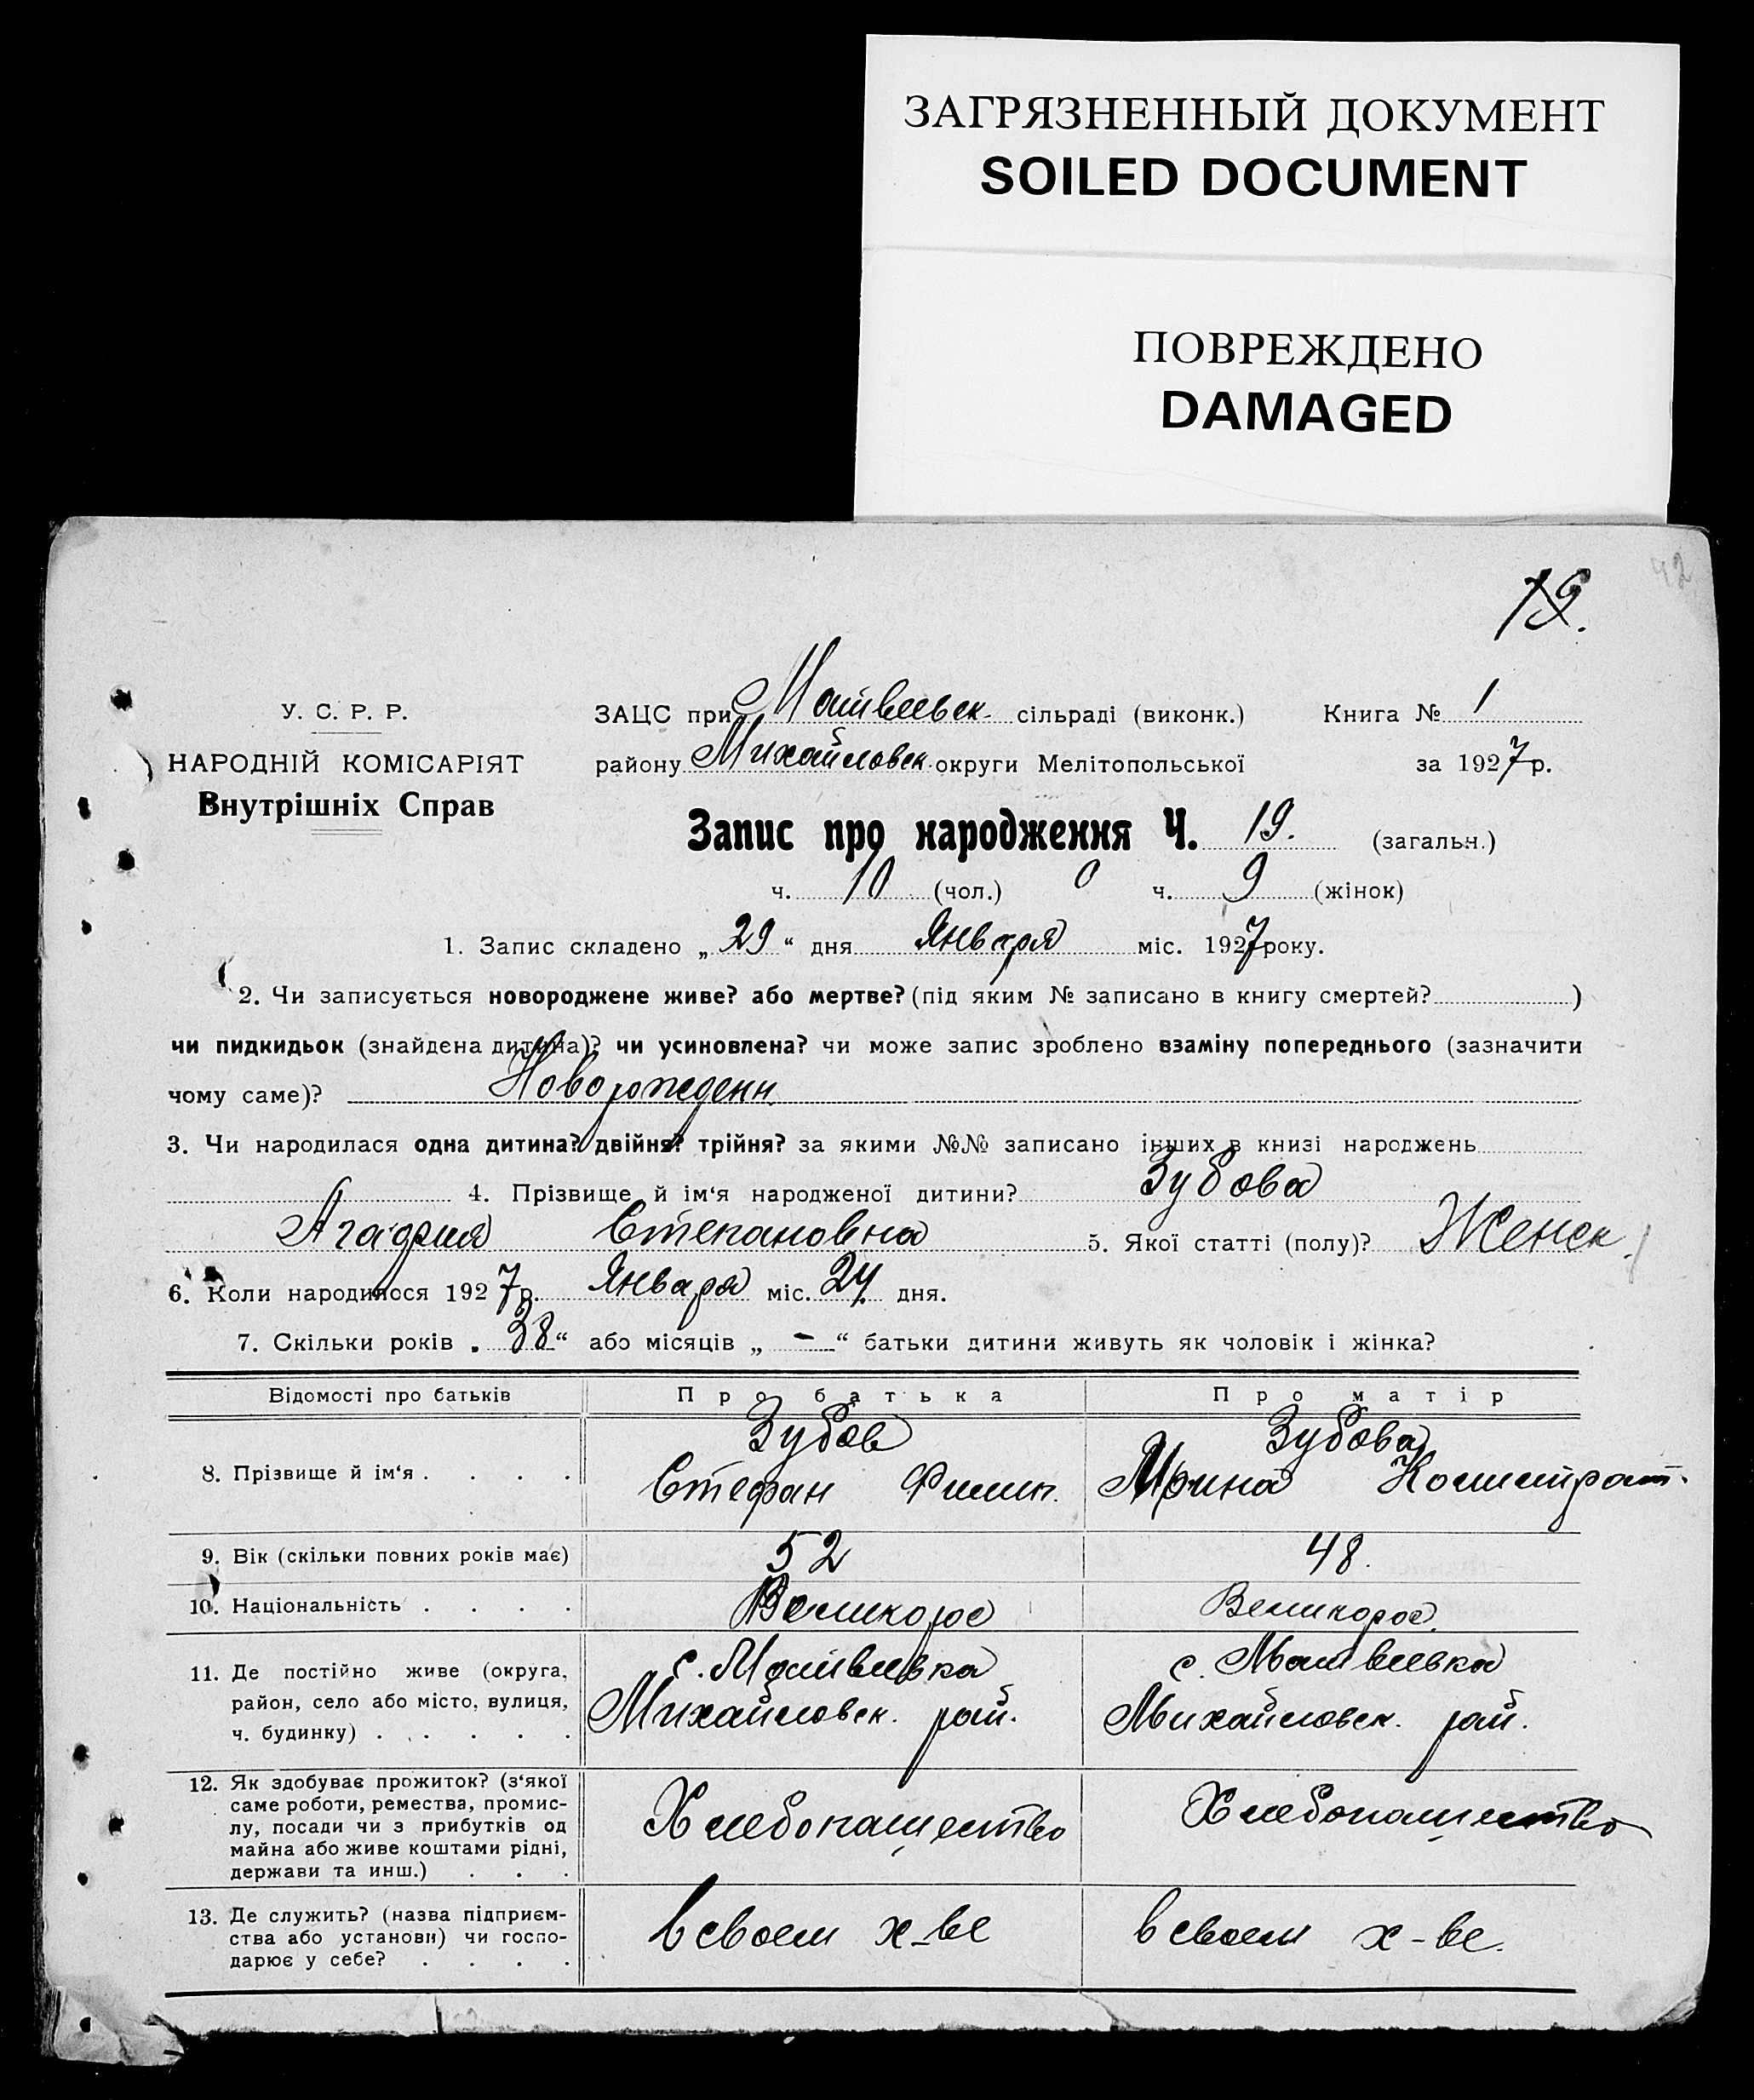 ЗАГРЯЗНЕННЫЙ ДОКУМЕНТ
SOILED DOCUMENT
ПОВРЕЖДЕНО
DAMAGED
42
19.
У. С. Р. Р.
НАРОДНІЙ КОМІСАРІЯТ
Внутрішніх Справ
ЗАЦС при Матвеевск. сільраді (виконк.) Книга № 1
району Михайловск. округи Мелітопольської за 1927 р.
Запис про народження Ч. 19. (загальн.)
ч. 10 (чол.) ч. 9 (жінок)
1. Запис складено „ 29 “ дня Января міс. 1927 року.
2. Чи записується новороджене живе? або мертве? (під яким № записано в книгу смертей? )
чи пидкидьок (знайдена дитина)? чи усиновлена? чи може запис зроблено взаміну попереднього (зазначити
чому саме)? Новорожденн.
3. Чи народилася одна дитина? двійня? трійня? за якими №№ записано інших в книзі народжень
4. Прізвище й ім‘я народженої дитини? Зубова
Агафия Степановна 5. Якої статті (полу)? Женск.
6. Коли народилося 1927 р. Января міс. 24 дня.
7. Скільки років „ 38 “ або місяців „ - “ батьки дитини живуть як чоловік і жінка?
Відомості про батьків Про батька Про матір
8. Прізвище й ім‘я . . . . Зубов Зубова
Стефан Филип. Ирина
9. Вік (скільки повних років має) 52 48.
10. Національність . . . . Великорос Великорос.
11. Де постійно живе (округа, с. Матвеевка с. Матвеевка
район, село або місто, вулиця, Михайловск. рай. Михайловск. рай.
ч. будинку) . . . . .
12. Як здобуває прожиток? (з‘якої
саме роботи, ремества, промис-
лу, посади чи з прибутків од Хлебопашество Хлебопашество
майна або живе коштами рідні,
держави та инш.) . . .
13. Де служить? (назва підприєм-
ства або установи) чи госпо- в своем х-ве в своем х-ве.
дарює у себе? . . . .